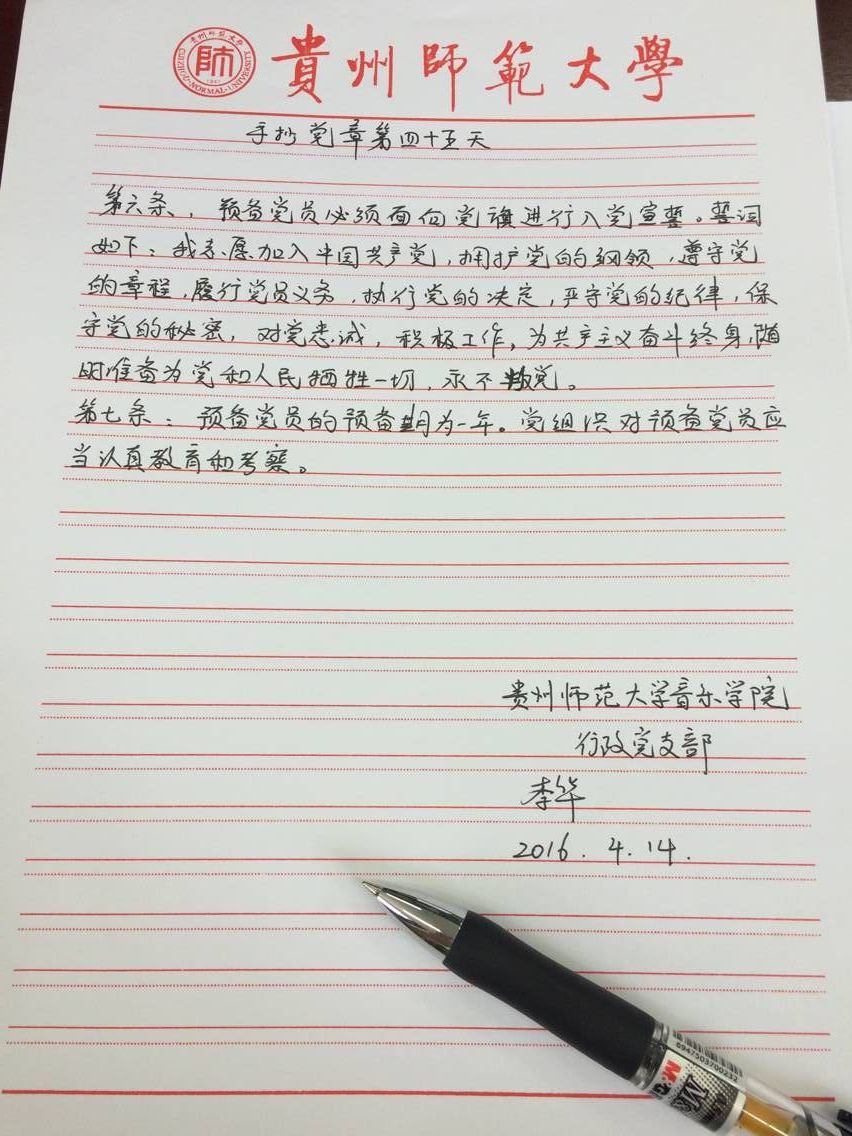 貴州師範大學
貴州師范大学
GUIZHOU NORMAL UNIVERSITY
師
1941
手抄党章第四十五天
第六条，预备党员必须面向党旗进行入党宣誓。誓词
如下：我志愿加入中国共产党，拥护党的纲领，遵守党
的章程，履行党员义务，执行党的决定，严守党的纪律，保
守党的秘密，对党忠诚，积极工作，为共产主义奋斗终身，随
时准备为党和人民牺牲一切，永不叛党。
第七条：预备党员的预备期为一年。党组织对预备党员应
当认真教育和考察。
贵州师范大学音乐学院
行政党支部
李华
2016.4.14.
6947503700232